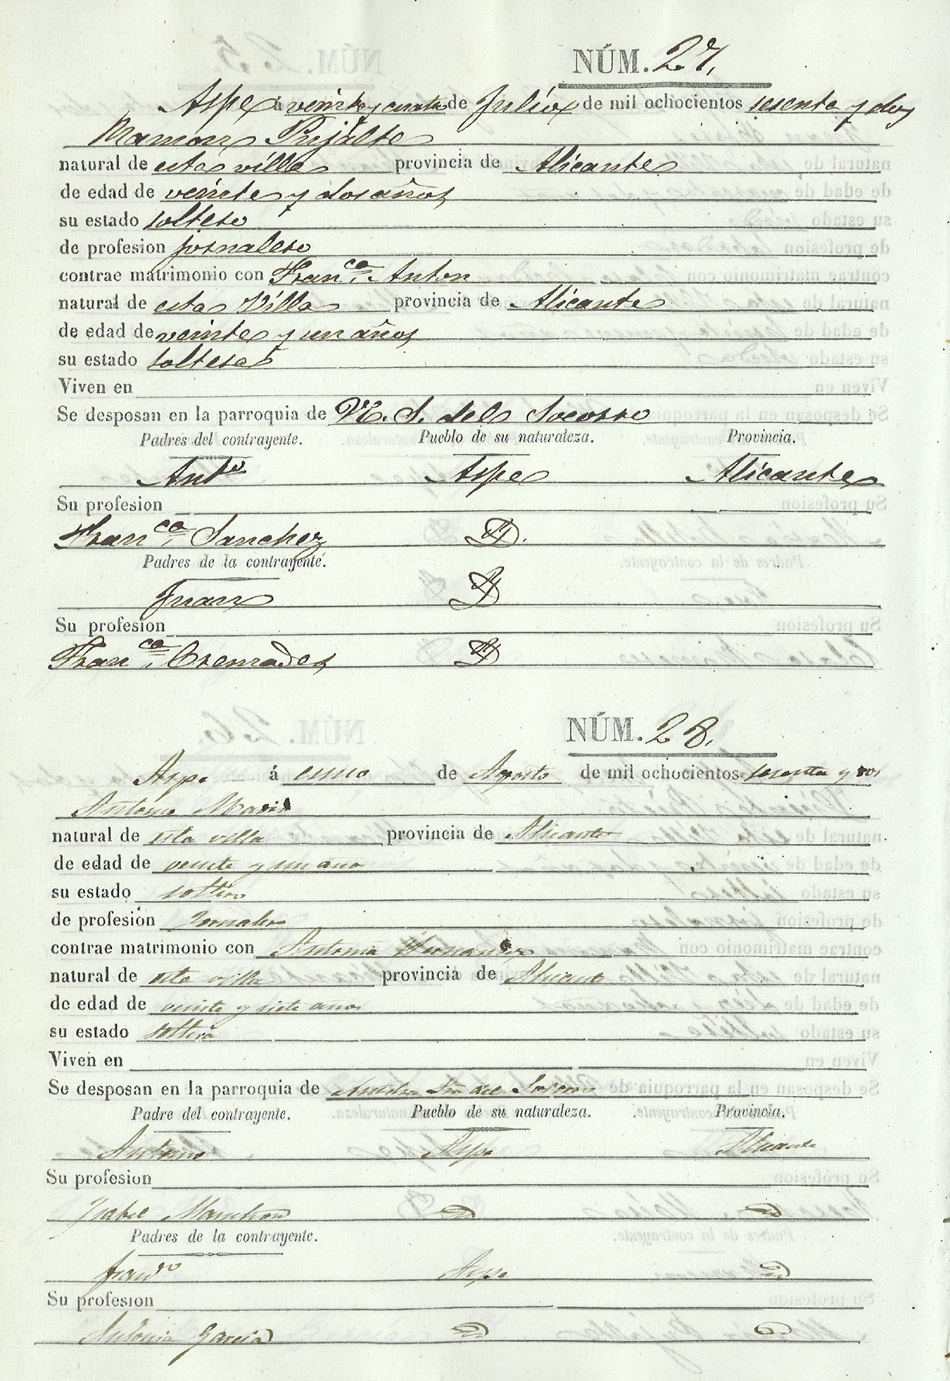 NÚM. 27.
Aspe á veinte y cuatro de Julio de mil ochocientos sesenta y dos
Ramon Pujalte
natural de esta villa provincia de Alicante
de edad de veinte y dos años
su estado soltero
de profesion jornalero
contrae matrimonio con Franca. Anton
natural de esta Villa provincia de Alicante
de edad de veinte y un años
su estado soltera
Viven en
Se desposan en la parroquia de N. S. del Socorro
Padres del contrayente. Pueblo de su naturaleza. Provincia.
Anto Aspe Alicante
Su profesion
Franca. Sanchez D.
Padres de la contrayente.
Juan D
Su profesion
Franca. Cremades D
NÚM. 28.
Aspe á cinco de Agosto de mil ochocientos sesenta y dos
Antonio
natural de esta villa provincia de Alicante
de edad de veinte y un año
su estado soltero
de profesión Jornalero
contrae matrimonio con Antonia Hernandez
natural de esta villa provincia de Alicante
de edad de veinte y siete años
su estado soltera
Viven en
Se desposan en la parroquia de Nuestra Sra del Socorro
Padre del contrayente. Pueblo de su naturaleza. Provincia.
Antonio Aspe Alicante
Su profesion
Isabel
Padres de la contrayente.
Aspe
Su profesion
Antonia Garcia